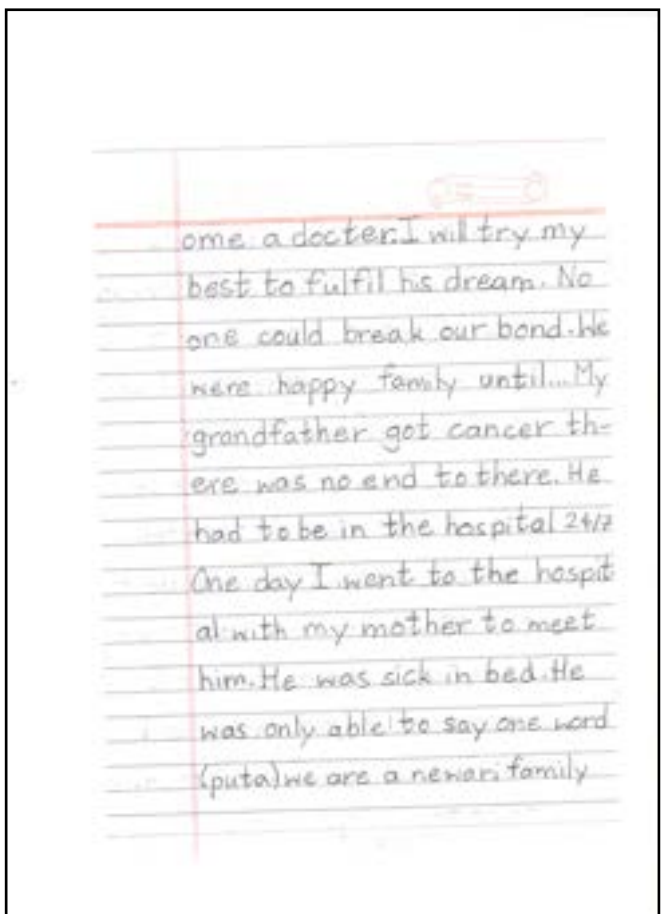 ome a docter.I will try my
best to fulfil his dream. No
one could break our bond. We
were happy family until... My
grandfather got cancer th-
ere was no end to there. He
had to be in the hospital 24/7
One day I went to the hospit
al with my mother to meet
him. He was sick in bed. He
was only able to say one word
(puta) we are a newari family